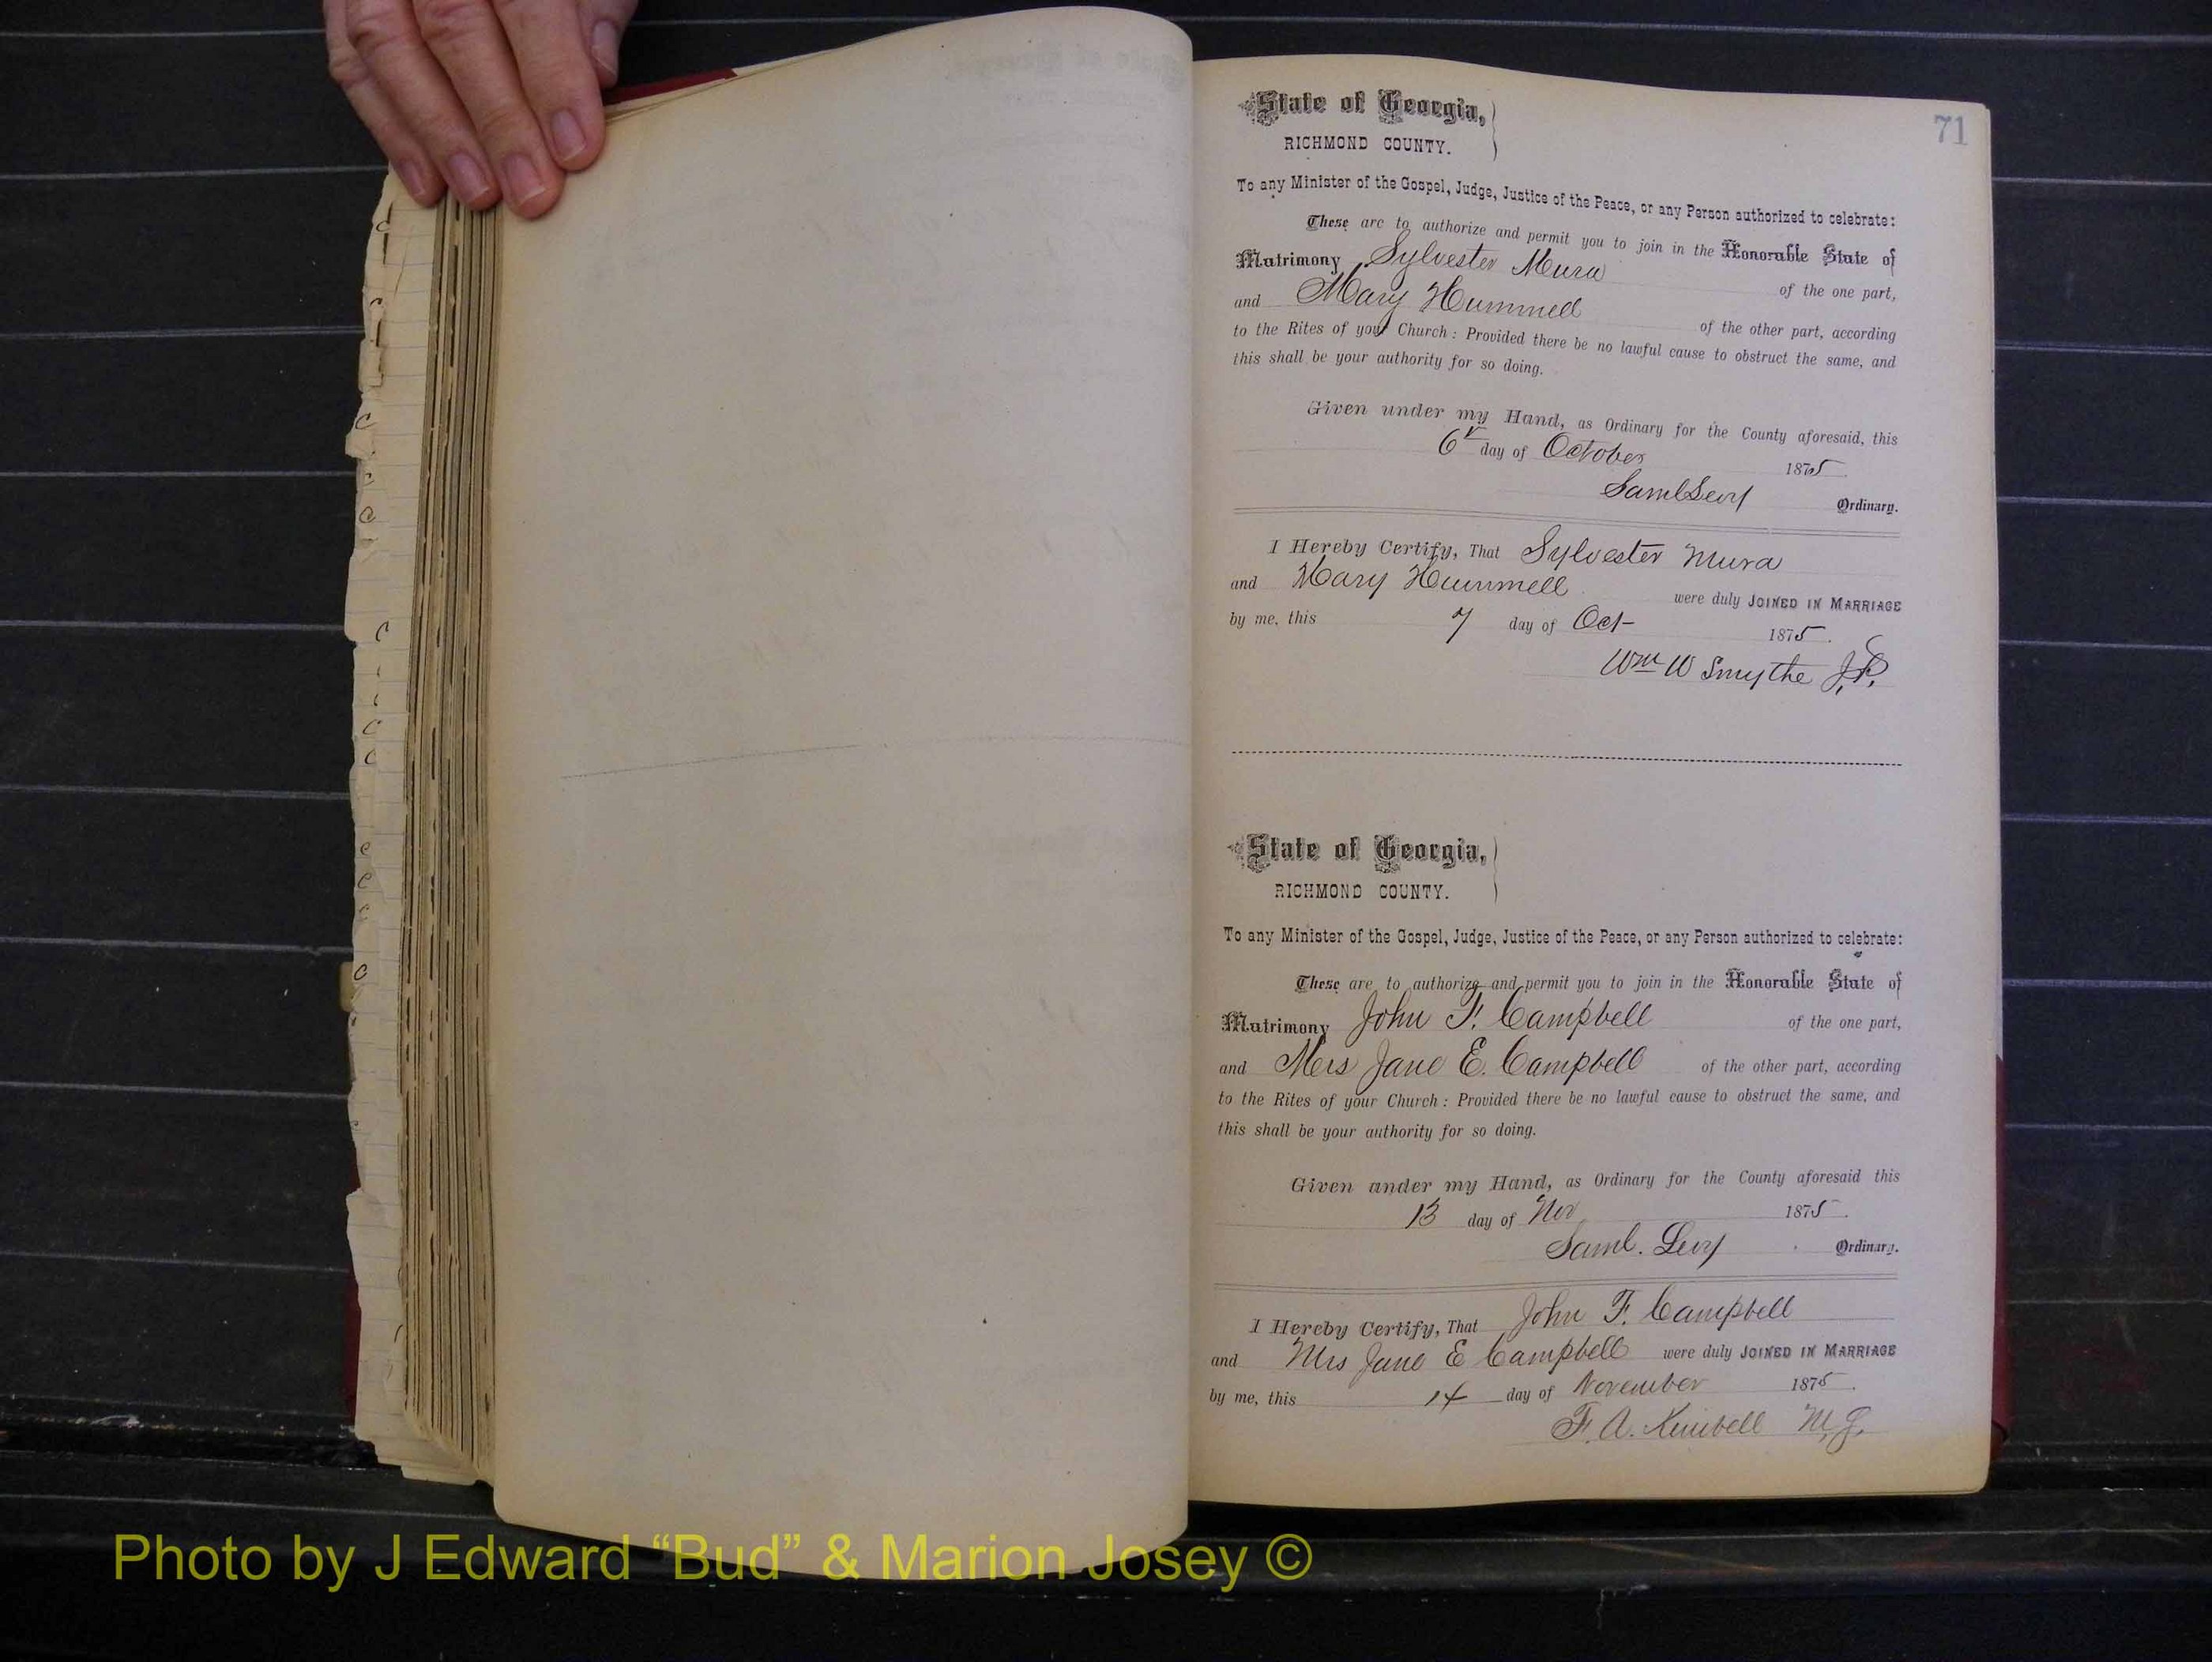 71
State of Georgia,
RICHMOND COUNTY.
To any Minister of the Gospel, Judge, Justice of the Peace, or any Person authorized to celebrate:
These are to authorize and permit you to join in the Honorable State of
Matrimony Sylvester Mura of the one part,
and Mary Hummell of the other part, according
to the Rites of your Church: Provided there be no lawful cause to obstruct the same, and
this shall be your authority for so doing.
Given under my Hand, as Ordinary for the County aforesaid, this
6th day of October 1875
Saml Levy Ordinary.
I Hereby Certify, That Sylvester Mura
and Mary Hummell were duly JOINED IN MARRIAGE
by me, this 7 day of Oct 1875.
Wm W Smythe J.P.
State of Georgia,
RICHMOND COUNTY.
To any Minister of the Gospel, Judge, Justice of the Peace, or any Person authorized to celebrate:
These are to authorize and permit you to join in the Honorable State of
Matrimony John F. Campbell of the one part,
and Mrs Jane E. Campbell of the other part, according
to the Rites of your Church: Provided there be no lawful cause to obstruct the same, and
this shall be your authority for so doing.
Given under my Hand, as Ordinary for the County aforesaid this
13 day of Nov 1875.
Saml. Levy Ordinary.
I Hereby Certify, That John F. Campbell
and Mrs Jane E Campbell were duly JOINED IN MARRIAGE
by me, this 14 day of November 1875.
F. A. Kimbell M.G.
Photo by J Edward “Bud” & Marion Josey ©